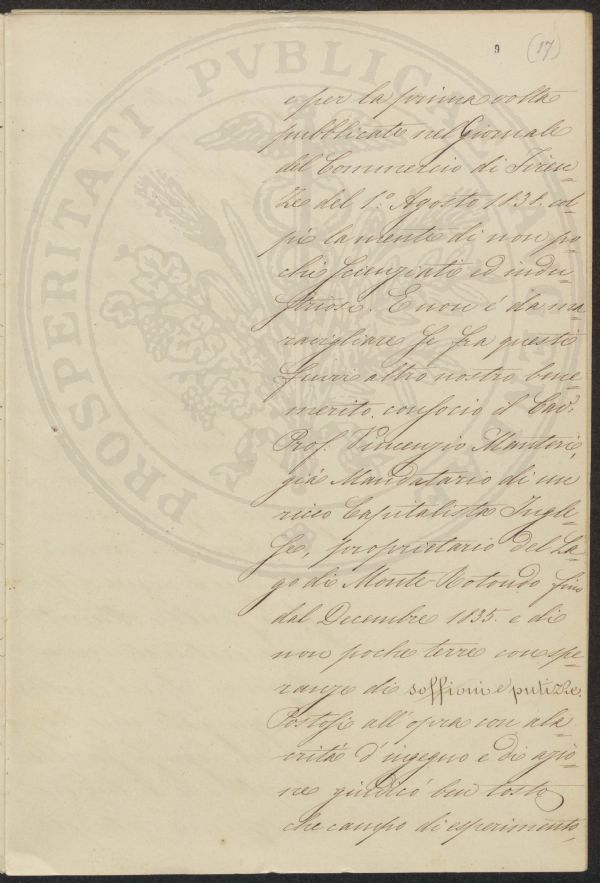 9 (17)
PROSPERITATI PVBLICAE
e per la prima volta
pubblicate nel Giornale
del Commercio di Firen=
ze del 1.º Agosto 1838. col=
pì la mente di non po=
chi Scienziati ed indu=
striosi. E non è da ma=
ravigliare se fra questi
fuvvi altro nostro bene=
merito consocio il Cav.
Prof. Vincenzio Manteri,
già Mandatario di un
ricco Capitalista Ingle=
se, proprietario del La=
go di Monte-Rotondo fino
dal Decembre 1835. e di
non poche terre con spe=
ranze di soffioni e putizze.
Postosi all'opra con ala=
crità d'ingegno e di azio=
ne giudicò ben tosto
che campo di esperimento,